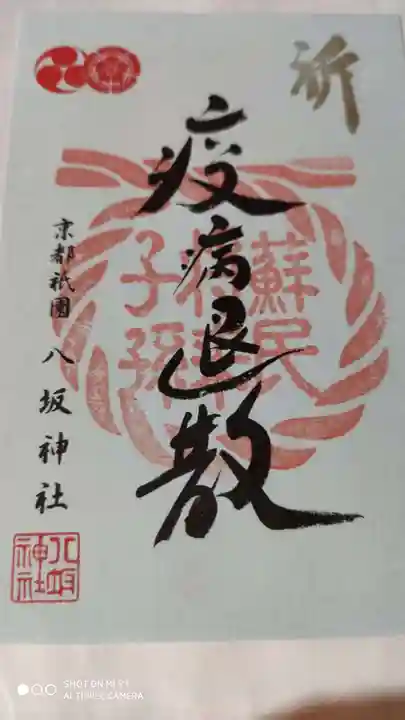 祈
疫病退散
蘇民
将来
子孫
京都祇園 八坂神社
八坂
神社
SHOT ON MI 9T
AI TRIPLE CAMERA